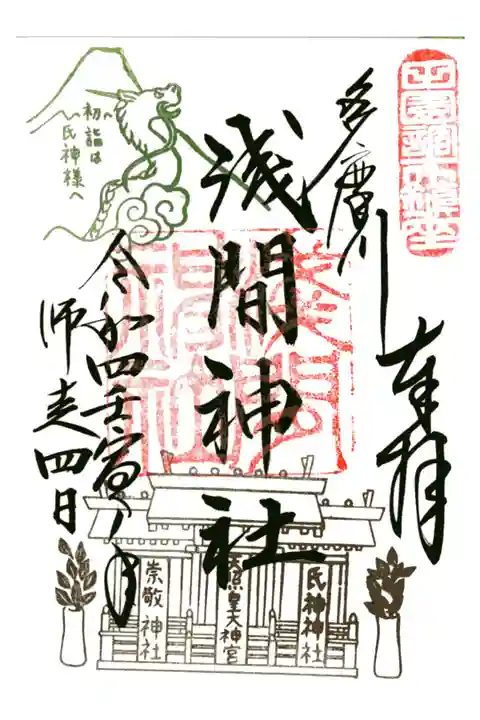 多摩川
奉拝
浅間神社
令和四壬寅ノ年
師走四日
初詣は
氏神様へ
氏神神社
天照皇大神宮
崇敬神社